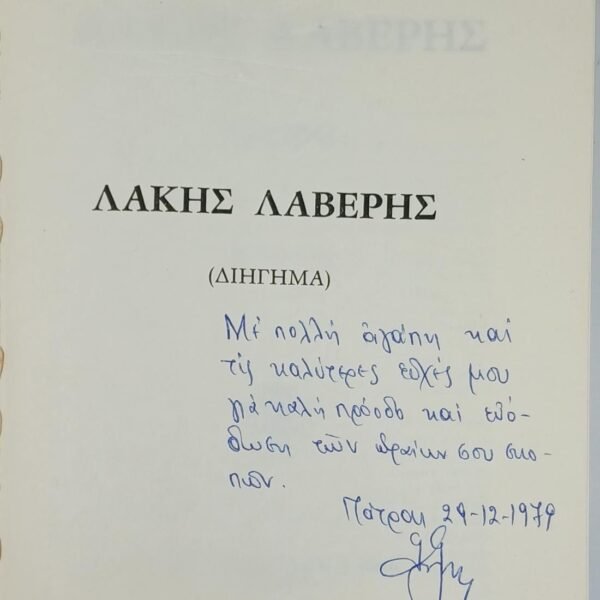 ΛΑΚΗΣ ΛΑΒΕΡΗΣ
(ΔΙΗΓΗΜΑ)
Μέ πολλή ἀγάπη καί
τίς καλύτερες εὐχές μου
γιά καλή πρόοδο καί εὐό-
δωση τῶν ὡραίων σου σκο-
πῶν.
Πάτρα 29-12-1979